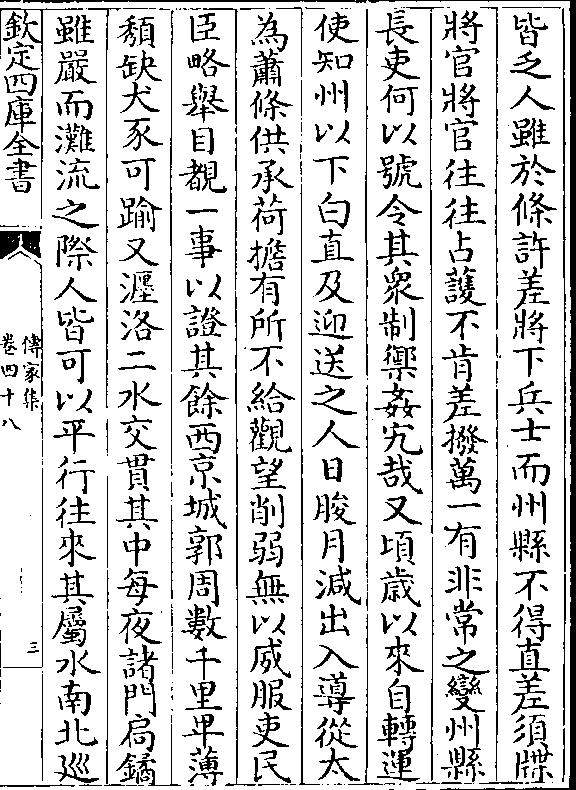 皆乏人雖於條許差將下兵士而州縣不得直差須牒
將官將官往往占護不肯差撥萬一有非常之變州縣
長吏何以號令其衆制禦姦宄哉又頃歲以來自轉運
使知州以下白直及迎送之人日朘月減出入導從太
為蕭條供承荷擔有所不給觀望削弱無以威服吏民
臣略舉目覩一事以證其餘西京城郭周數千里卑薄
頽缺犬豕可踰又瀍洛二水交貫其中每夜諸門扃鐍
雖嚴而灘流之際人皆可以平行往來其屬水南北廵
欽定四庫全書
傳家集
卷四十八
三